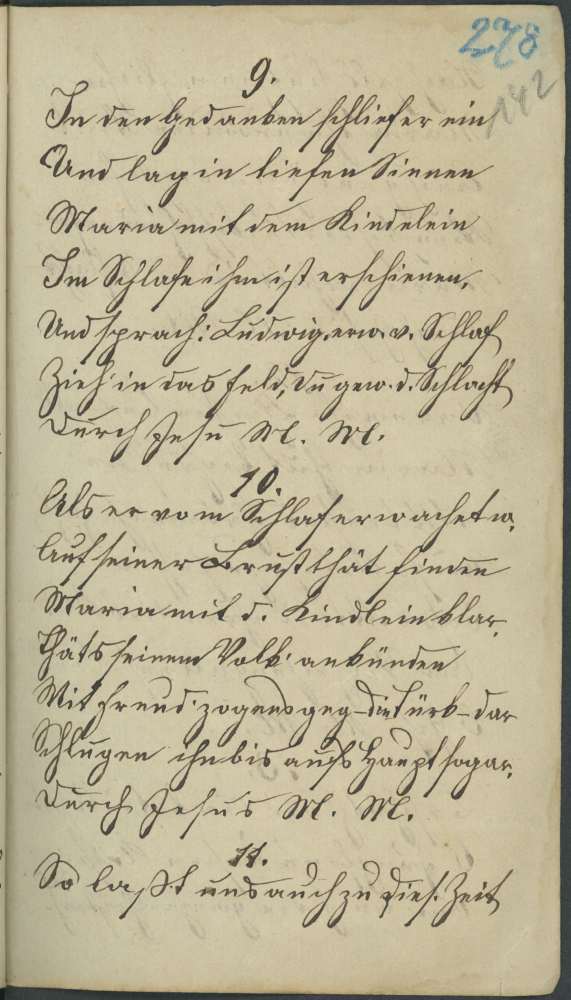 278
142
9.
In den Gedanken schlief er ein
Und lag in tiefen Sinnen
Maria mit dem Kindelein
Im Schlafe ihm ist erschienen,
Und sprach: Ludwig, erw. v. Schlaf
Zieh' in das Feld, du gew. d. Schlacht
Durch Jesu M. M.
10.
Als er vom Schlaf erwachet w.
Auf seiner Brust thät finden
Maria mit d. Kindlein klar,
Thäts seinem Volk' ankünden
Mit Freud' zogens geg- die Türk- dar
Schlugen ihn bis aufs Haupt sogar,
Durch Jesus M. M.
11.
So laßt uns auch zu dies. Zeit